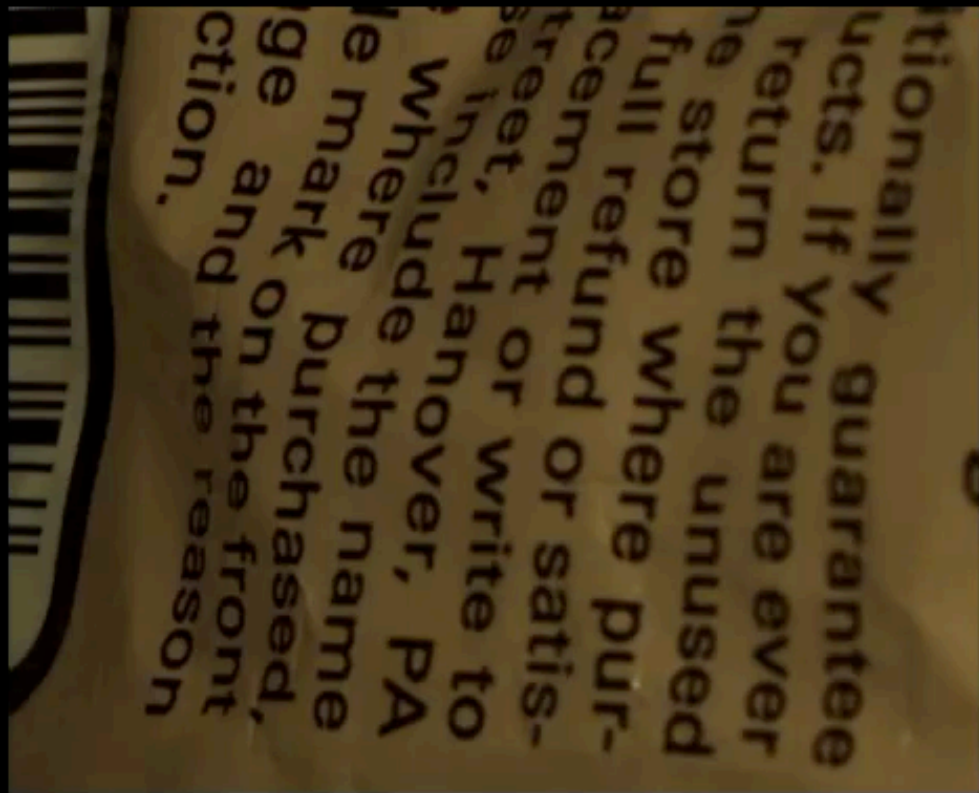 itionally guarantee
ucts. If you are ever
return the unused
he store where pur-
full refund or satis-
acement or write to
treet, Hanover, PA
se include the name
e where purchased,
de mark on the front
ge and the reason
ction.